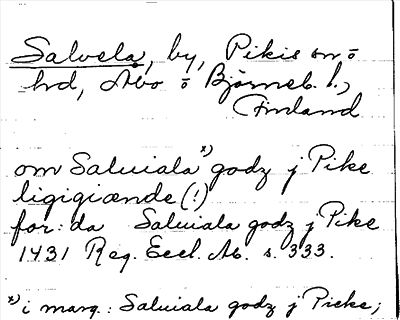 Salvela, by, Pikis sn o
hd, Åbo o Björneb. l.,
Finland
om Saluiala x) godz j Pike
ligigiænde (!)
for: da Saluiala godz j Pike
1431 Reg. Eccl. Ab. s. 333.
x) i marg.: Saluiala godz j Picke;